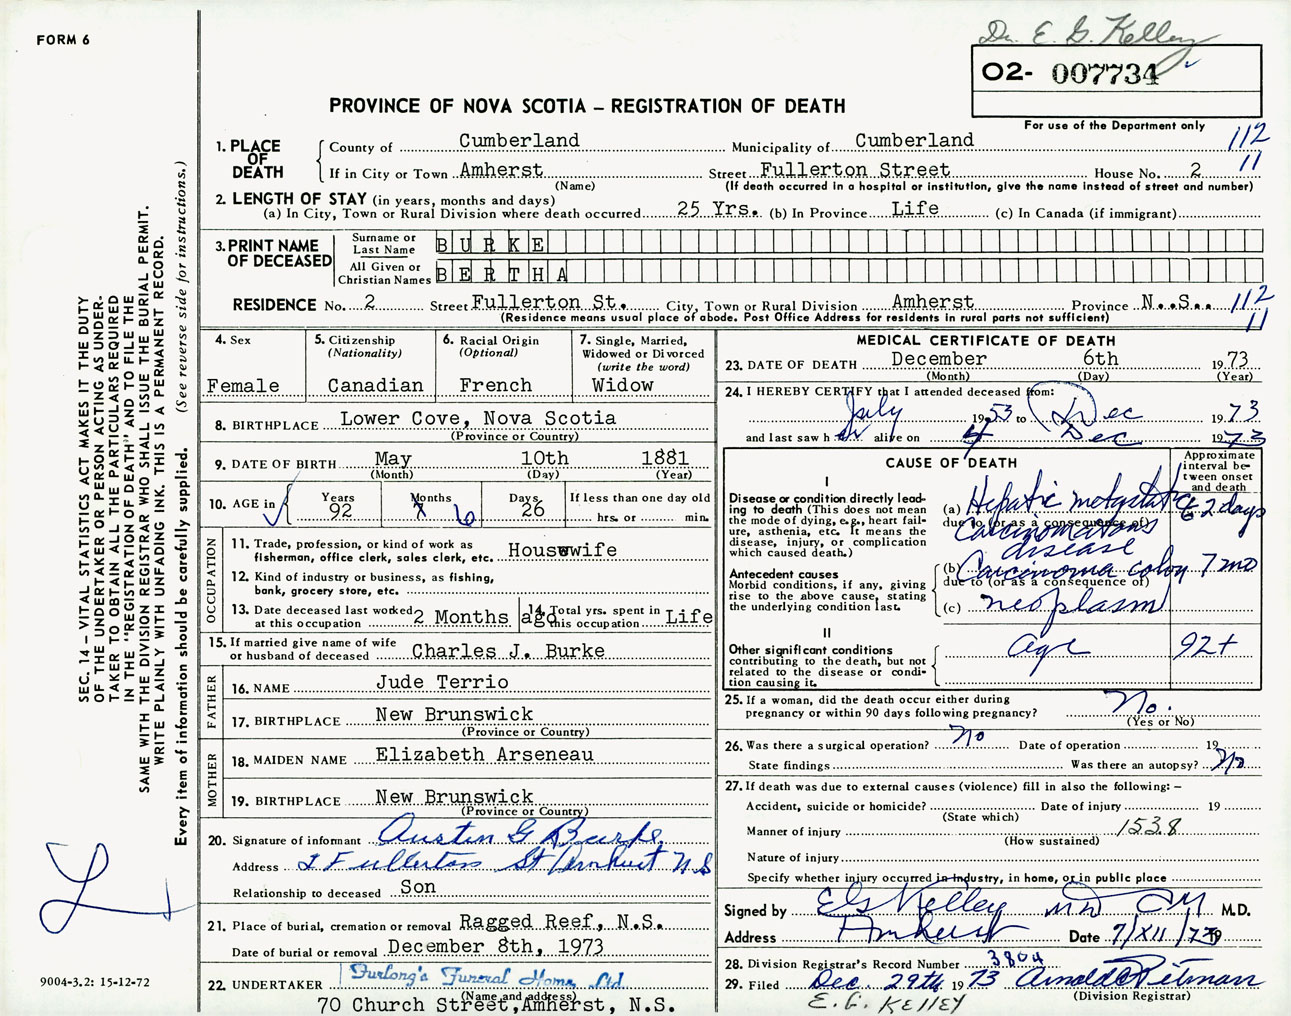 Dr. E. G. Kelley
FORM 6
O2- 007734
PROVINCE OF NOVA SCOTIA – REGISTRATION OF DEATH
For use of the Department only
1. PLACE OF DEATH
County of Cumberland Municipality of Cumberland 112
If in City or Town Amherst Street Fullerton Street House No. 2 11
(Name) (If death occurred in a hospital or institution, give the name instead of street and number)
2. LENGTH OF STAY (in years, months and days)
(a) In City, Town or Rural Division where death occurred 25 Yrs. (b) In Province Life (c) In Canada (if immigrant)
3. PRINT NAME OF DECEASED
Surname or Last Name BURKE
All Given or Christian Names BERTHA
RESIDENCE No. 2 Street Fullerton St. City, Town or Rural Division Amherst Province N.S. 112
(Residence means usual place of abode. Post Office Address for residents in rural parts not sufficient) 11
4. Sex
Female
5. Citizenship (Nationality)
Canadian
6. Racial Origin (Optional)
French
7. Single, Married, Widowed or Divorced (write the word)
Widow
8. BIRTHPLACE Lower Cove, Nova Scotia
(Province or Country)
9. DATE OF BIRTH May 10th 1881
(Month) (Day) (Year)
10. AGE in Years 92 Months 7 6 Days 26 If less than one day old
hrs. or min.
OCCUPATION
11. Trade, profession, or kind of work as fisherman, office clerk, sales clerk, etc. Housewife
12. Kind of industry or business, as fishing, bank, grocery store, etc.
13. Date deceased last worked at this occupation 2 Months ago
14. Total yrs. spent in this occupation Life
15. If married give name of wife or husband of deceased Charles J. Burke
FATHER
16. NAME Jude Terrio
17. BIRTHPLACE New Brunswick
(Province or Country)
MOTHER
18. MAIDEN NAME Elizabeth Arseneau
19. BIRTHPLACE New Brunswick
(Province or Country)
20. Signature of informant Austin G Burke
Address 2 Fullerton St Amherst N S
Relationship to deceased Son
21. Place of burial, cremation or removal Ragged Reef, N.S.
Date of burial or removal December 8th, 1973
22. UNDERTAKER Furlong's Funeral Home Ltd
(Name and address)
70 Church Street, Amherst, N.S.
MEDICAL CERTIFICATE OF DEATH
23. DATE OF DEATH December 6th 1973
(Month) (Day) (Year)
24. I HEREBY CERTIFY that I attended deceased from:
July 1953 to Dec 1973
and last saw her alive on 4 Dec 1973
CAUSE OF DEATH
Approximate interval between onset and death
I
Disease or condition directly leading to death (This does not mean the mode of dying, e.g., heart failure, asthenia, etc. It means the disease, injury, or complication which caused death.)
(a) Hepatic metastatic 2 days
due to (or as a consequence of)
Carcinomatous disease
Antecedent causes
Morbid conditions, if any, giving rise to the above cause, stating the underlying condition last.
(b) Carcinoma colon 7 mo
due to (or as a consequence of)
(c) neoplasm
II
Other significant conditions contributing to the death, but not related to the disease or condition causing it.
age 92+
25. If a woman, did the death occur either during pregnancy or within 90 days following pregnancy? No.
(Yes or No)
26. Was there a surgical operation? No Date of operation 19
State findings Was there an autopsy? No
27. If death was due to external causes (violence) fill in also the following: –
Accident, suicide or homicide? Date of injury 19
(State which)
Manner of injury 1538
(How sustained)
Nature of injury
Specify whether injury occurred in industry, in home, or in public place
Signed by EG Kelley MD CM M.D.
Address Amherst Date 7/XII/73
28. Division Registrar's Record Number 3804
29. Filed Dec. 29th 1973 Arnold Pitman
(Division Registrar)
E. G. KELLEY
SEC. 14 – VITAL STATISTICS ACT MAKES IT THE DUTY
OF THE UNDERTAKER OR PERSON ACTING AS UNDER-
TAKER TO OBTAIN ALL THE PARTICULARS REQUIRED
IN THE "REGISTRATION OF DEATH" AND TO FILE THE
SAME WITH THE DIVISION REGISTRAR WHO SHALL ISSUE THE BURIAL PERMIT.
WRITE PLAINLY WITH UNFADING INK. THIS IS A PERMANENT RECORD.
Every item of information should be carefully supplied. (See reverse side for instructions.)
9004-3.2: 15-12-72